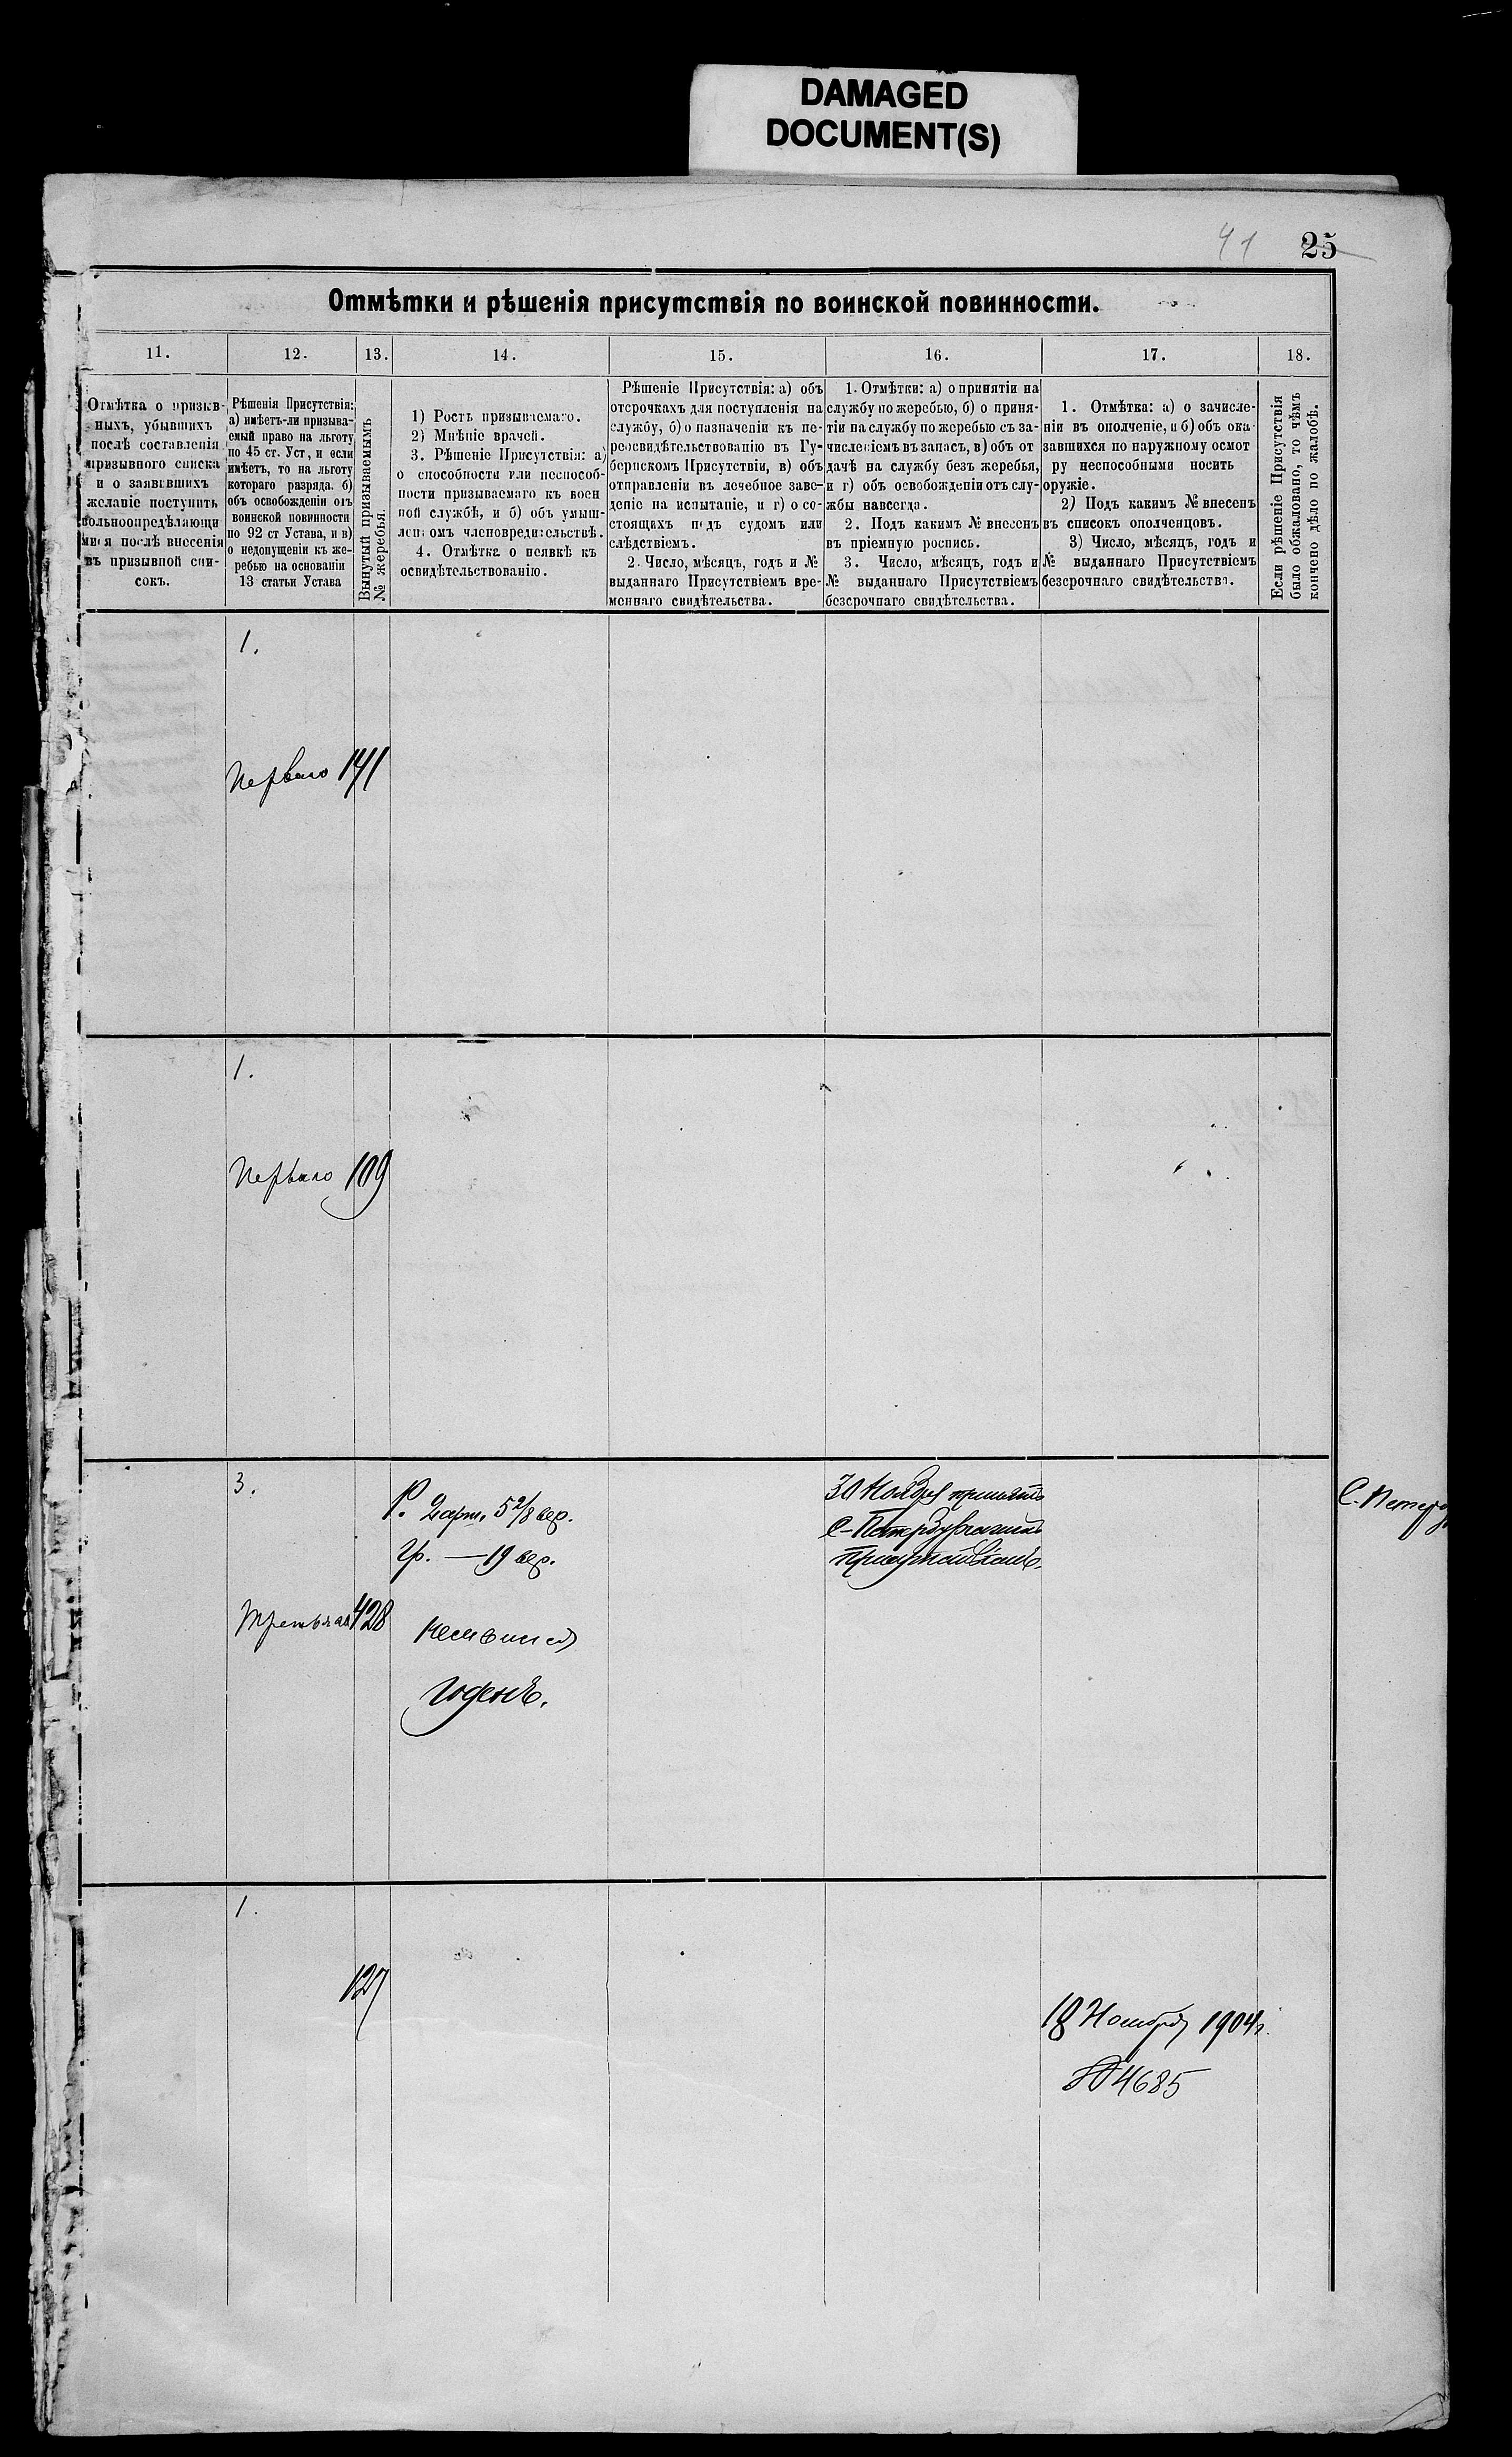 DAMAGED
DOCUMENT(S)
41 25
Отмѣтки и рѣшенія присутствія по воинской повинности.
11.
12.
13.
14.
15.
16.
17.
18.
Отмѣтка о призыв-
ныхъ, убывшихъ
послѣ составленія
призывного списка
и о заявившихъ
желаніе поступить
вольноопредѣляющи
мися послѣ внесенія
въ призывной спи-
сокъ.
Рѣшенія Присутствія:
а) имѣетъ-ли призыва-
емый право на льготу
по 45 ст. Уст, и если
имѣетъ, то на льготу
котораго разряда. б)
объ освобожденіи отъ
воинской повинности
по 92 ст Устава, и в)
о недопущеніи къ же-
ребью на основаніи
13 статьи Устава
Вынутый призываемымъ
№ жеребья.
1) Ростъ призываемаго.
2) Мнѣніе врачей.
3. Рѣшеніе Присутствія: а)
о способности или неспособ-
ности призываемаго къ воен
ной службѣ, и б) объ умыш-
ленномъ членовредительствѣ.
4. Отмѣтка о неявкѣ къ
освидѣтельствованію.
Рѣшеніе Присутствія: а) объ
отсрочкахъ для поступленія на
службу, б) о назначеніи къ пе-
реосвидѣтельствованію въ Гу-
бернскомъ Присутствіи, в) объ
отправленіи въ лечебное заве-
деніе на испытаніе, и г) о со-
стоящихъ подъ судомъ или
слѣдствіемъ.
2. Число, мѣсяцъ, годъ и №
выданнаго Присутствіемъ вре-
меннаго свидѣтельства.
1. Отмѣтки: а) о принятіи на
службу по жеребью, б) о приня-
тіи на службу по жеребью съ за-
численіемъ въ запасъ, в) объ от
дачѣ на службу безъ жеребья,
и г) объ освобожденіи отъ слу-
жбы навсегда.
2. Подъ какимъ № внесенъ
въ пріемную роспись.
3. Число, мѣсяцъ, годъ и
№ выданнаго Присутствіемъ
безсрочнаго свидѣтельства.
1. Отмѣтка: а) о зачисле-
ніи въ ополченіе, и б) объ ока
завшихся по наружному осмот
ру неспособными носить
оружіе.
2) Подъ какимъ № внесенъ
въ списокъ ополченцовъ.
3) Число, мѣсяцъ, годъ и
№ выданнаго Присутствіемъ
безсрочнаго свидѣтельства.
Если рѣшеніе Присутствія
было обжаловано, то чѣмъ
кончено дѣло по жалобѣ.
1.
Перваго 141
1.
Перваго 109
3.
Р. 2 арш. 5 2/8 вер.
Гр. — 19 вер.
30 Ноября принятъ
С-Петербургскимъ
Присутствіемъ.
428
Годенъ.
1.
127
18 Ноября 1904 г.
№ 4685